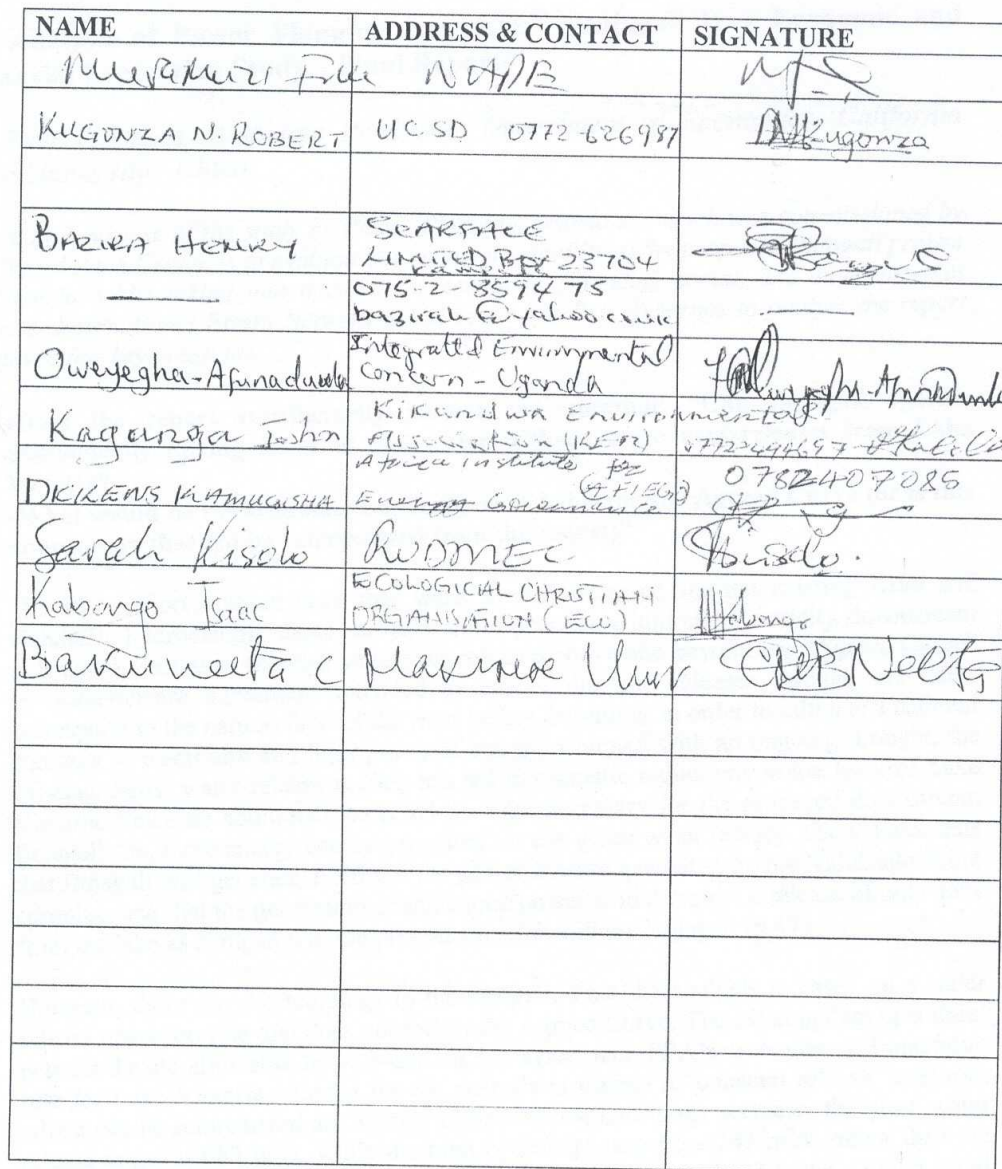 NAME ADDRESS & CONTACT SIGNATURE
NAPE
KUGONZA N. ROBERT UCSD 0772-626987 Kugonza
BAZIRA HENRY SEARFACE
LIMITED, Box 23704
KAMPALA
075-2-859475
Oweyegha-Afunaduula Integrated Environmental
Concern - Uganda
Kaganga John Kikandwa Environmental
Association (KEA)
Africa institute for
DICKENS KAMUGISHA Energy Governance (AFIEGO) 0782407085
Sarah Kisolo RUDMEC Kisolo.
Kabongo Isaac ECOLOGICIAL CHRISTIAN
ORGANISATION (ECO) Kabongo
Bakuneeta C Makerere Univ CBNeeta